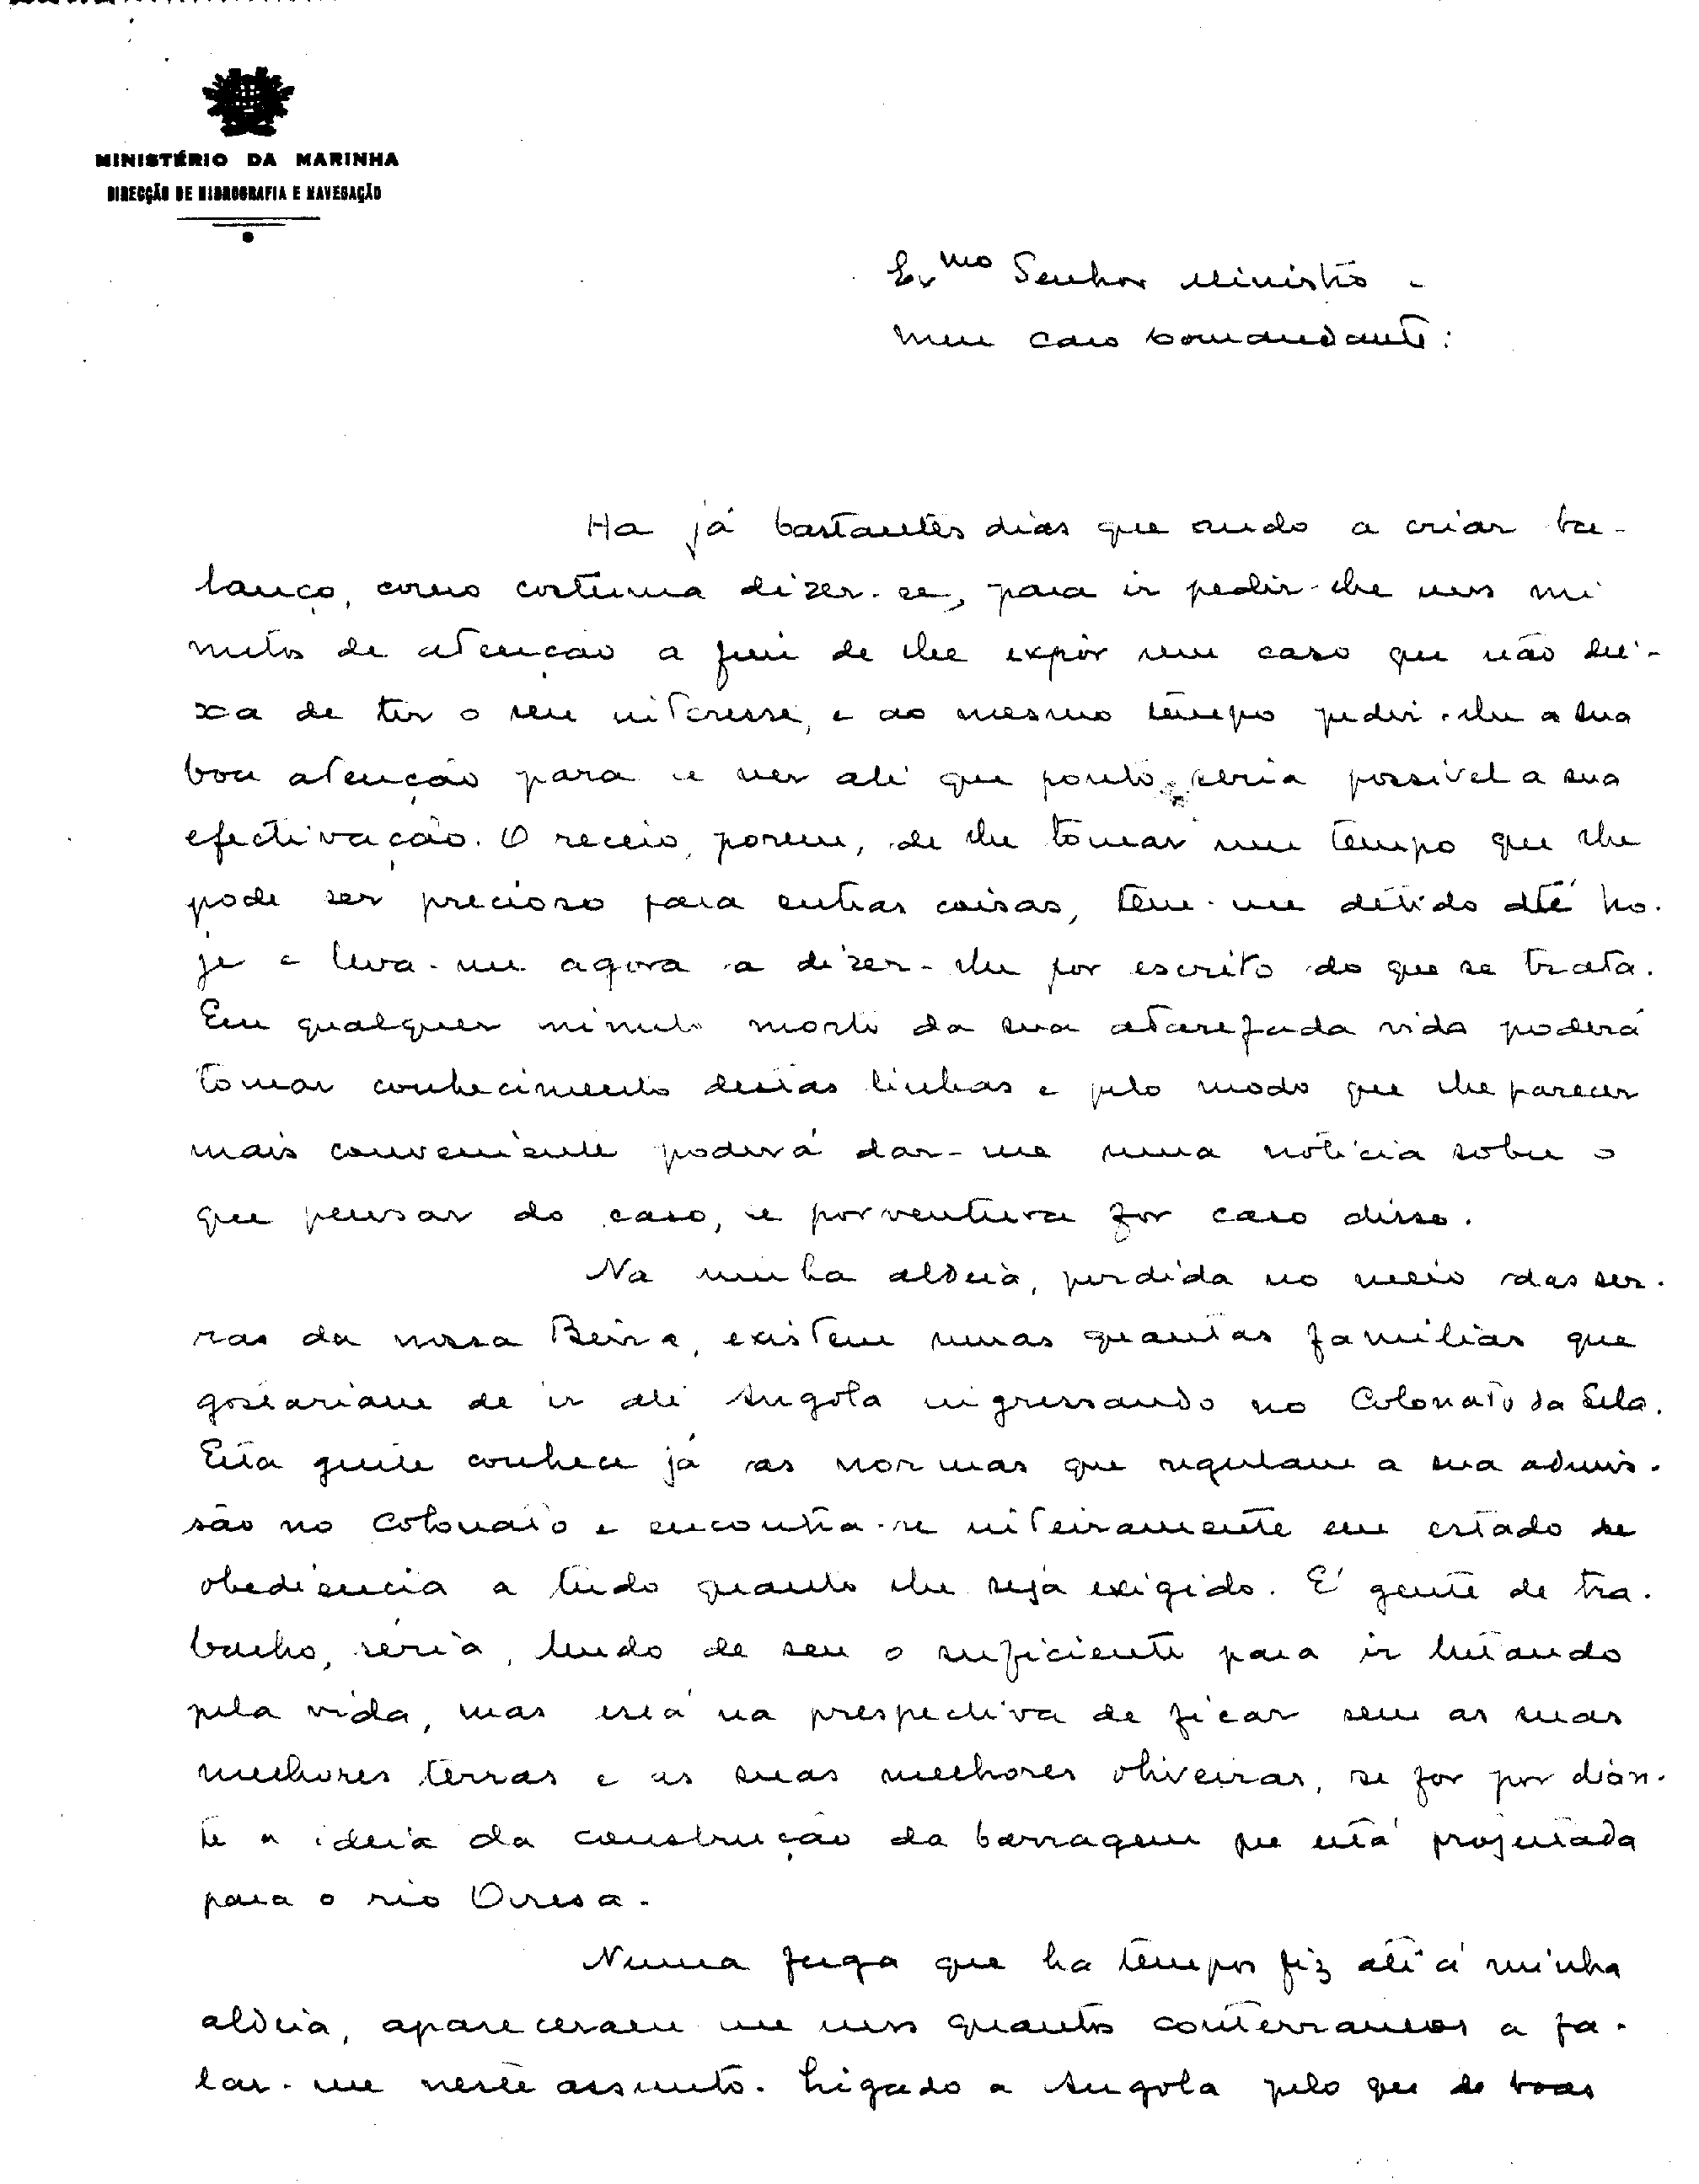 MINISTÉRIO DA MARINHA
DIRECÇÃO DE HIDROGRAFIA E NAVEGAÇÃO
Exmo Senhor Ministro -
Meu caro Comandante:
Ha já bastantes dias que ando a criar ba-
lanço, como costuma dizer-se, para ir pedir-lhe uns mi
nutos de atenção a fim de lhe expôr um caso que não dei-
xa de ter o seu interesse, e ao mesmo tempo pedir-lhe a sua
boa atenção para se ver até que ponto seria possível a sua
efectivação. O receio, porem, de lhe tomar um tempo que lhe
pode ser precioso para outras coisas, tem-me detido até ho-
je e leva-me agora a dizer-lhe por escrito do que se trata.
Em qualquer minuto morto da sua atarefada vida poderá
tomar conhecimento destas linhas e pelo modo que lhe parecer
mais conveniente poderá dar-me uma notícia sobre o
que pensar do caso, se porventura for caso disso.
Na minha aldeia, perdida no meio das ser-
ras da nossa Beira, existem umas quantas familias que
gostariam de ir até Angola ingressando no Colonato da Cela.
Esta gente conhece já as normas que regulam a sua admis-
são no Colonato e encontra-se inteiramente em estado de
obediencia a tudo quanto lhe seja exigido. É gente de tra-
balho, séria, tendo de seu o suficiente para ir lutando
pela vida, mas está na prespectiva de ficar sem as suas
melhores terras e as suas melhores oliveiras, se for por dian-
te a ideia da construção da barragem que está projectada
para o rio Ocresa.
Numa fuga que ha tempos fiz até á minha
aldeia, apareceram me uns quantos conterraneos a fa-
lar-me neste assunto. Ligado a Angola pelo que de boas